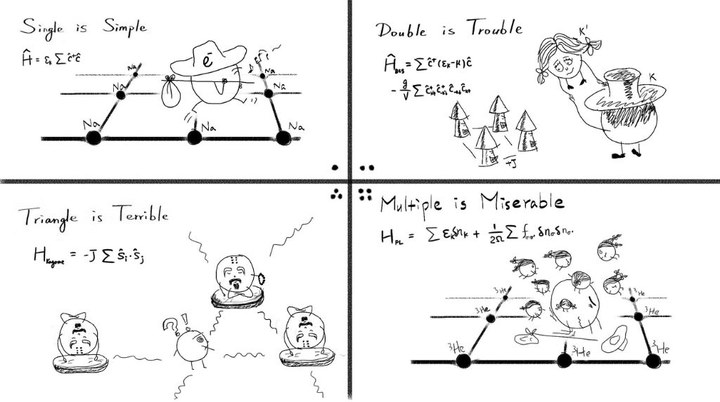 Single is Simple
Ĥ = εₖ ∑ ĉ⁺ĉ
Na
Na
Na
Na
Na
Na
Na
ê
Double is Trouble
Ĥ_BCS = ∑ ĉ⁺(εₖ-μ)ĉ
- g/V ∑ ĉ⁺ ĉ⁺ ĉ ĉ
K'
K
+J
Triangle is Terrible
H_Kagome = -J ∑ Ŝᵢ·Ŝⱼ
?
!
Multiple is Miserable
H_FL = ∑ εₖ δnₖ + 1/2Ω ∑ f δnσ δnσ'
³He
³He
³He
³He
³He
³He
³He